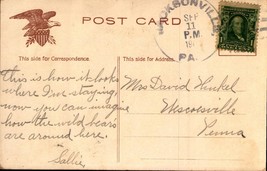 POST CARD
JACKSONVILLE
SEP
11
P.M
PA.
This side for Correspondence.
This side for Address.
This is how it looks
where I'm staying,
now you can imagine
how the wild bears
are around here.
Sallie
Mrs David Kunkel
Wescoesville
Penna